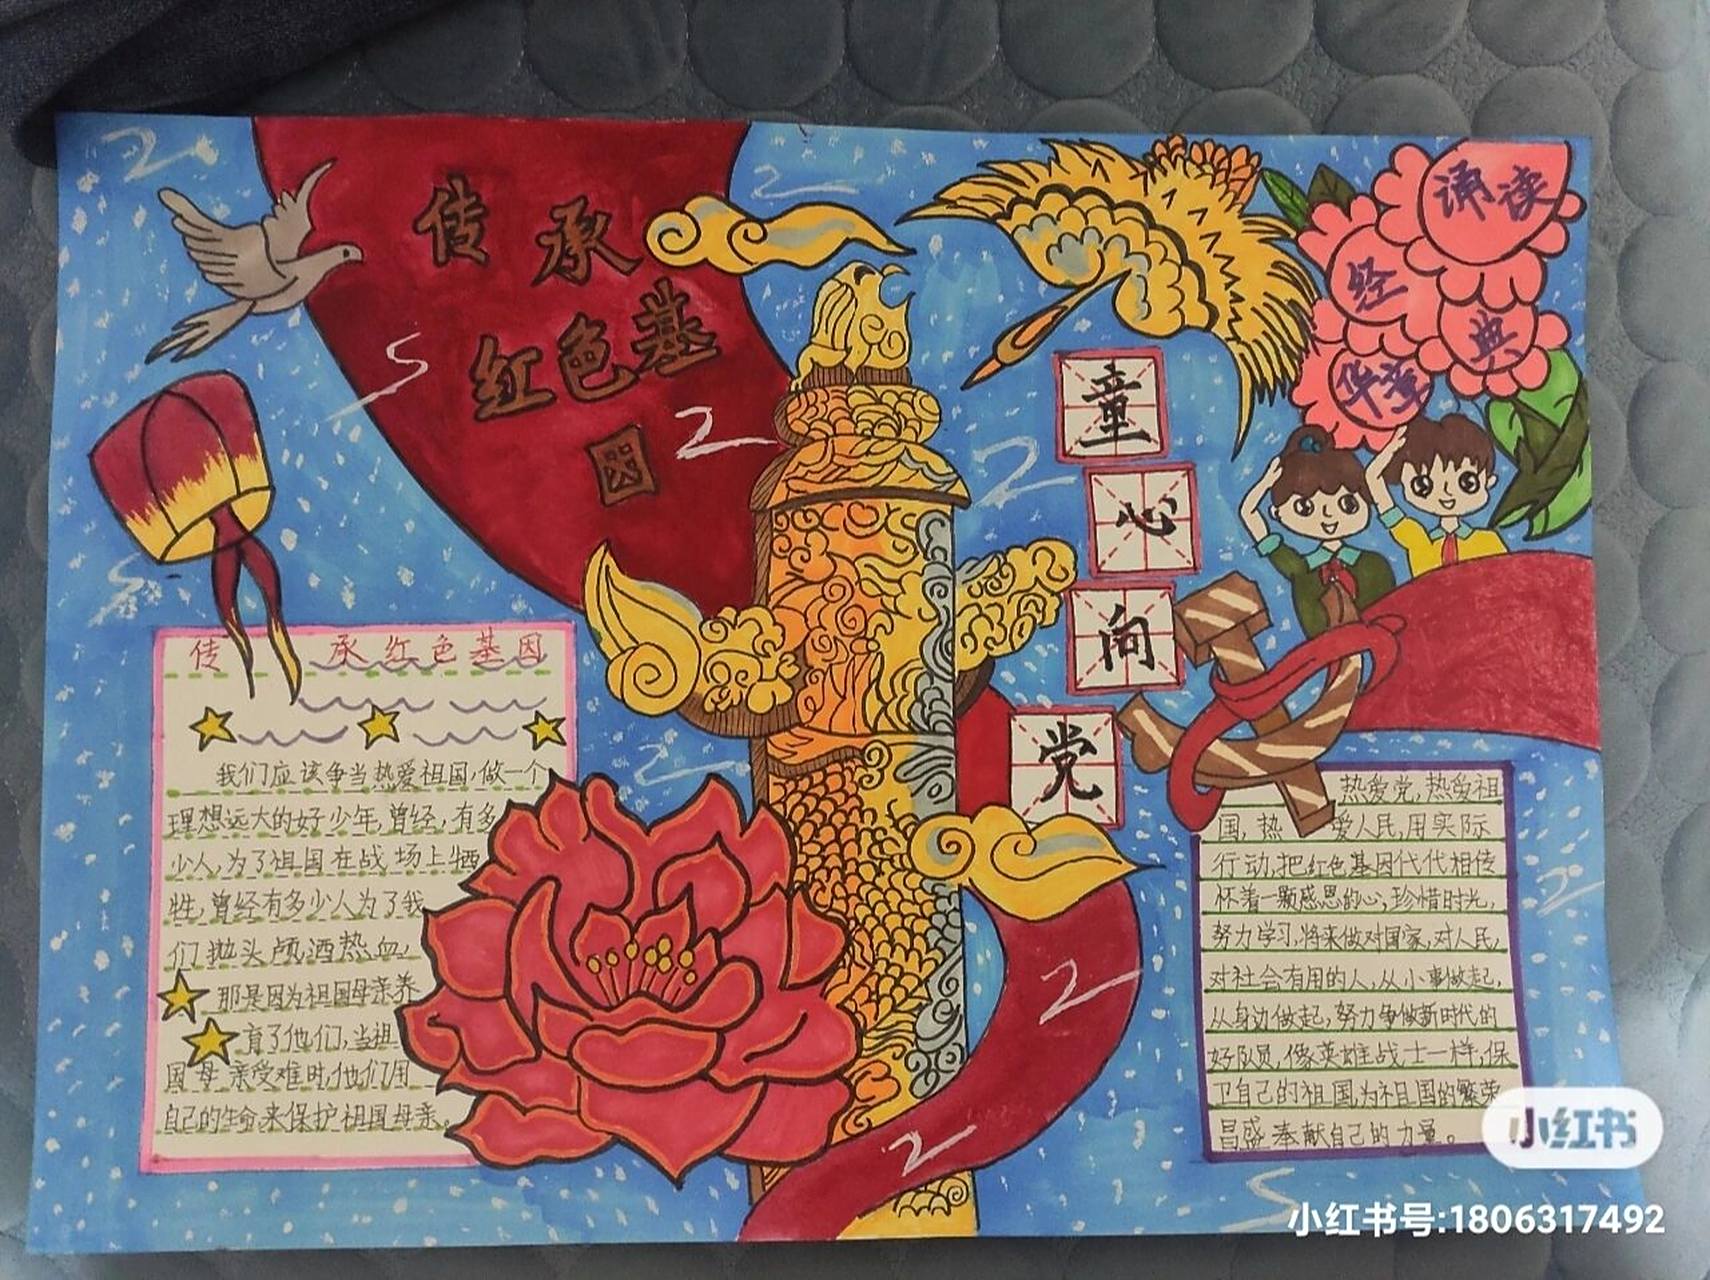 传承
红色基
因
诵读
经
典
华章
童
心
向
党
传 承红色基因
我们应该争当热爱祖国,做一个
理想远大的好少年,曾经,有多
少人,为了祖国在战场上牺
牲,曾经有多少人为了我
们抛头颅洒热血!
那是因为祖国母亲养
育了他们,当祖
国母亲受难时,他们用
自己的生命来保护祖国母亲。
热爱党,热爱祖
国,热 爱人民,用实际
行动,把红色基因代代相传
怀着一颗感恩的心,珍惜时光,
努力学习,将来做对国家,对人民,
对社会有用的人,从小事做起,
从身边做起,努力争做新时代的
好队员,像英雄战士一样,保
卫自己的祖国,为祖国的繁荣
昌盛奉献自己的力量。
小红书
小红书号:1806317492